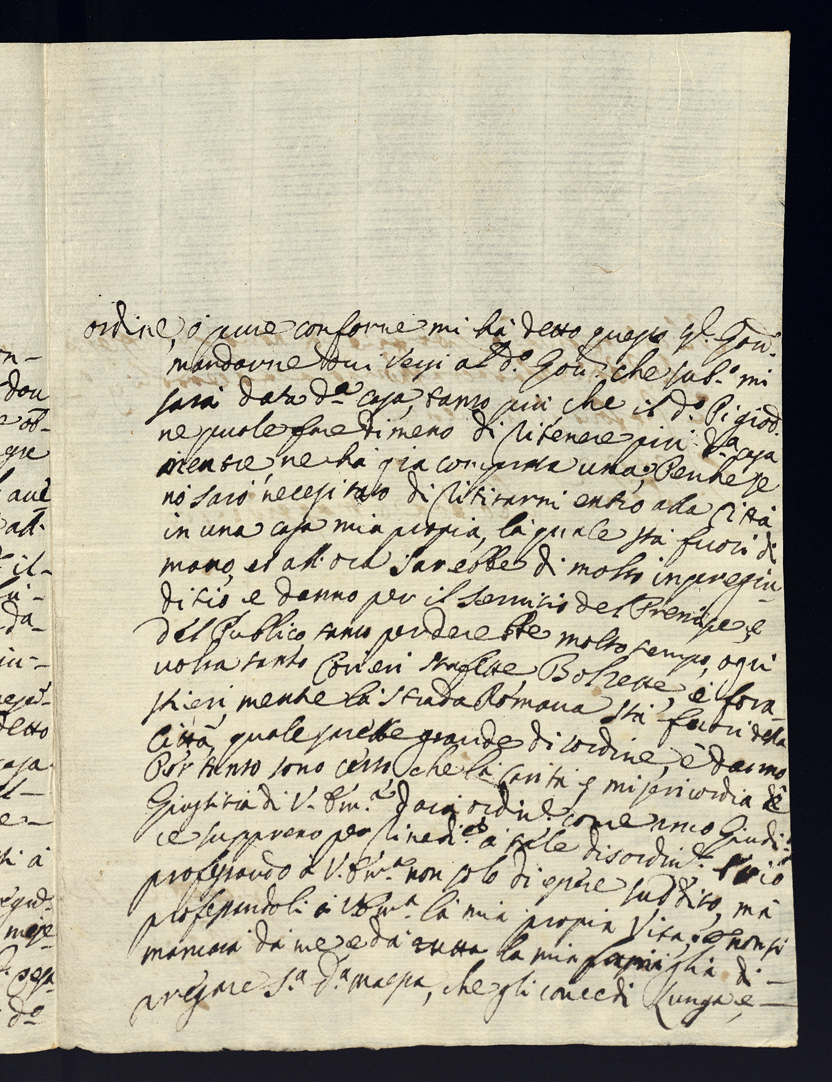 n-
dou
e ob-
gre
l aue
all
il-
ui-
da-
iu-
detto
casa
l-
e-
ti à
mese
d.º
ordine, ò pure conforme mi hà detto questo Sr. Gou.r
mandarne doi Versi al d.º Gou.r che sub.º mi
sarà data d.ª casa, tanto più che il d.º
ne puole fare dimeno di ritenere più d.ª casa
mentre ne hà già comprata una, Perche se
nò sarò necesitato di ritirarmi entro alla città
in una casa mia propia, la quale stà fuori di
mano, et all'ora sarebbe di molto inpregiu-
ditio e danno per il seruitio del Prencipe, e
del Publico tanto perderebbe molto tempo, ogni
uolta tanto Corrieri Staffette Bolzette, è fora-
stieri mentre la strada Romana stà fuori della
Città, quale sarebbe grande disordine, è danno
Pertanto sono certo che la Carità e misericordia è
Giustitia di V. Em.ª darà ordine come unico Giudi-
ce suppremo per rimediare à tale disordine
profesando à V. Em.ª non solo di esere suddito, mà
profesandoli à V. Em.ª la mia propia Vita, e non si
mancarà da me e da tutta la mia famiglia di-
pregare S.ª D.ª Maestà, che gli concedi Lunga e-